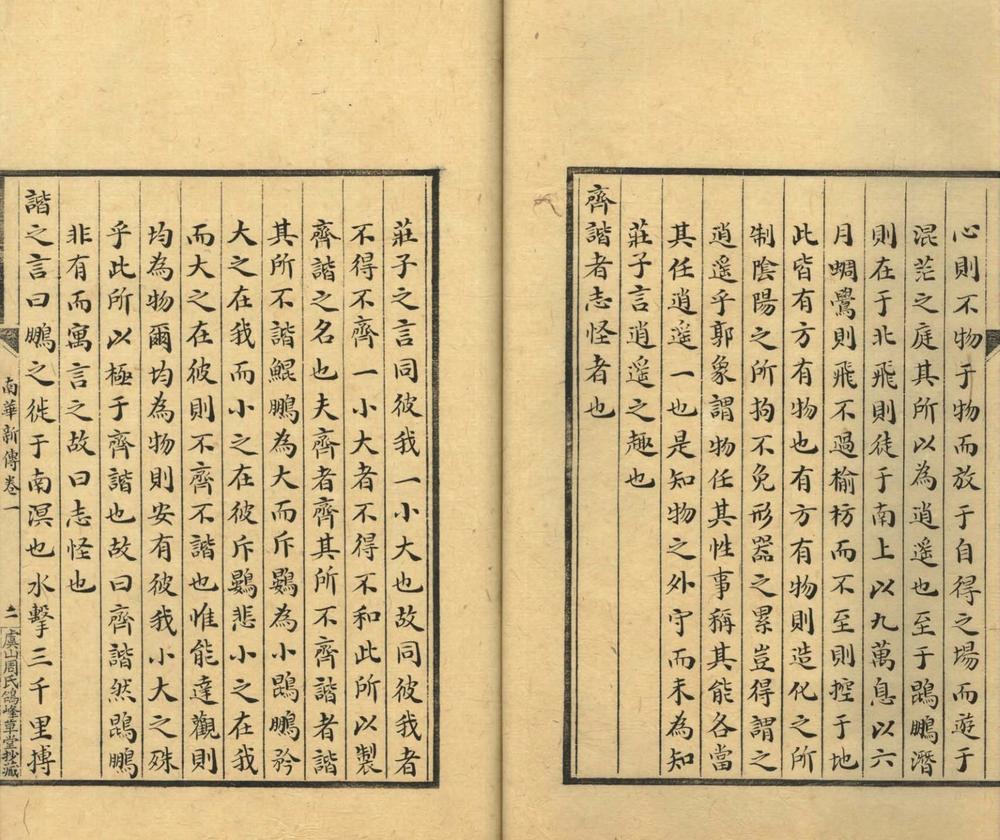 心則不物于物而放于自得之場而遊于
混茫之庭其所以為逍遥也至于鵾鵬潛
則在于北飛則徒于南上以九萬息以六
月蜩鷽則飛不過榆枋而不至則控于地
此皆有方有物也有方有物則造化之所
制陰陽之所拘不免形器之累豈得謂之
逍遥乎郭象謂物任其性事稱其能各當
其任逍遥一也是知物之外守而未為知
莊子言逍遥之趣也
齊諧者志怪者也
莊子之言同彼我一小大也故同彼我者
不得不齊一小大者不得不和此所以製
齊諧之名也夫齊者齊其所不齊諧者諧
其所不諧鯤鵬為大而斥鷃為小鵾鵬矜
大之在我而小之在彼斥鷃悲小之在我
而大之在彼則不齊不諧也惟能達觀則
均為物爾均為物則安有彼我小大之殊
乎此所以極于齊諧也故曰齊諧然鵾鵬
非有而寓言之故曰志怪也
諧之言曰鵬之徙于南溟也水擊三千里摶
南華新傳卷一
二
虞山周氏鴿峰草堂抄藏